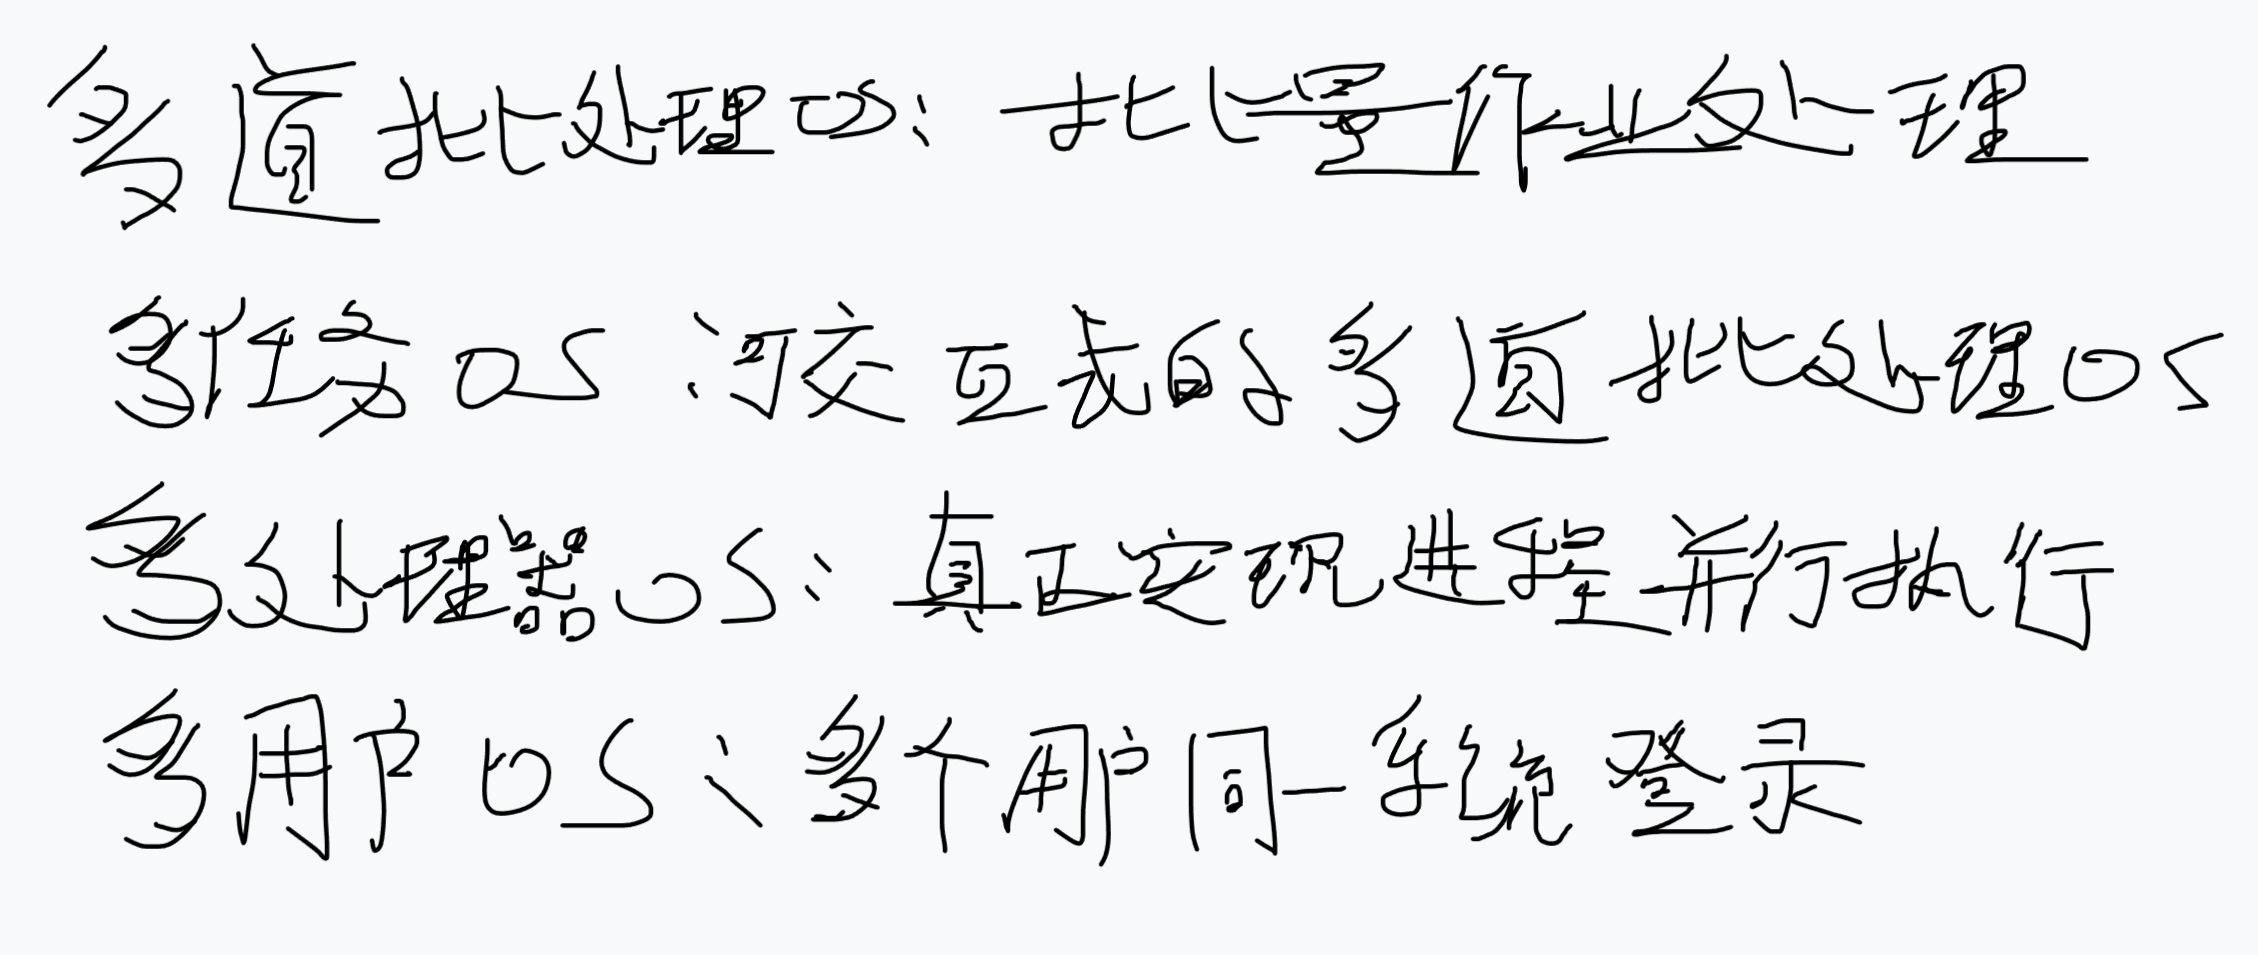 多道批处理OS:批量作业处理
多任务OS:可交互式的多道批处理OS
多处理器OS:真正实现进程并行执行
多用户OS:多个用户同一系统登录